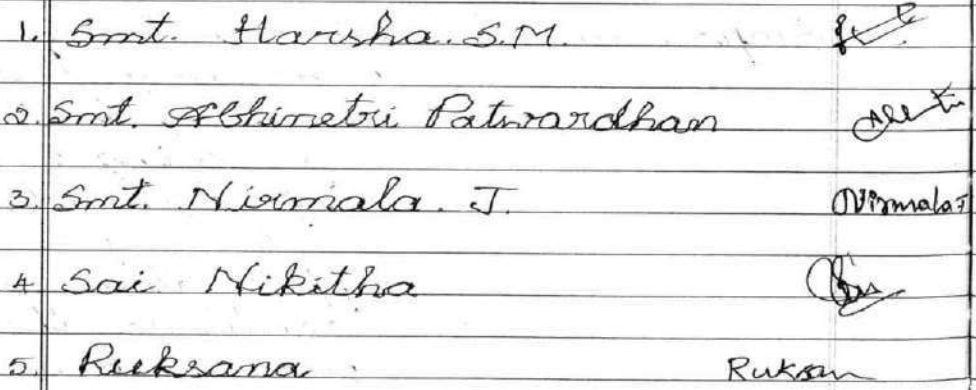 1. Smt. Harsha. S.M.
2. Smt. Abhinetri Patwardhan
3. Smt. Nirmala. J. Nirmala J
4 Sai Nikitha
5. Ruksana Ruksan